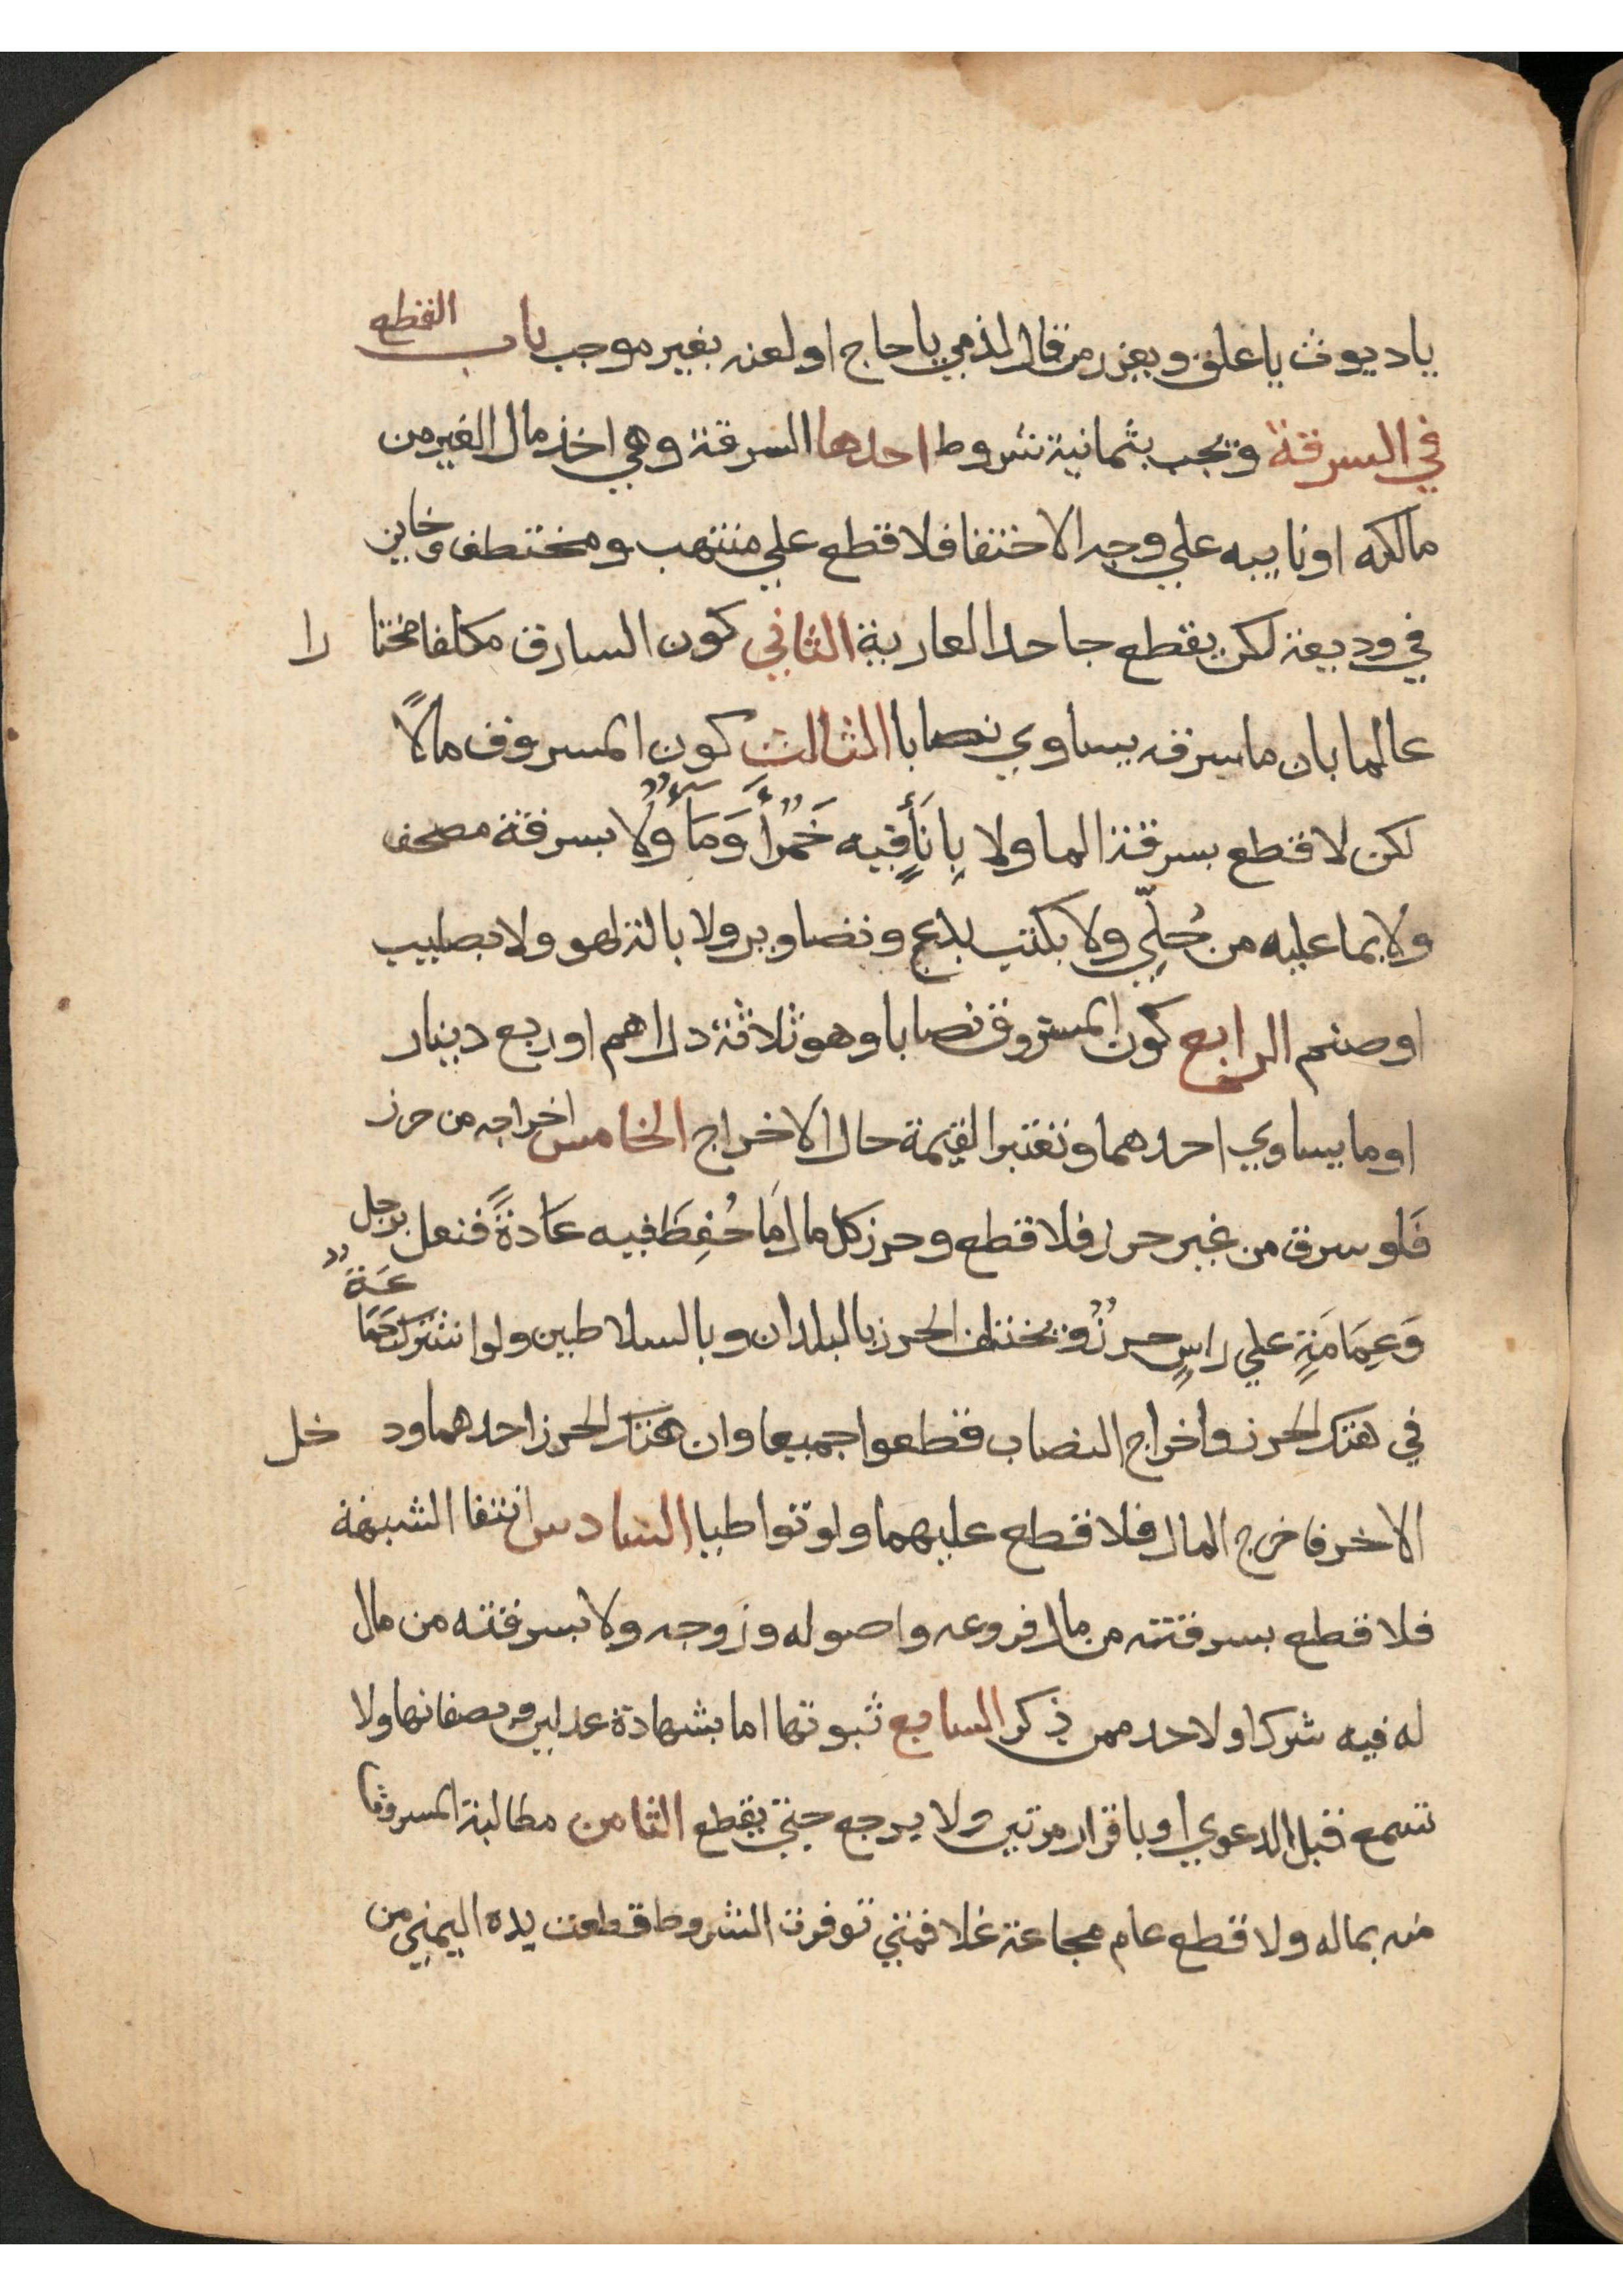 ياديوث ياعلق ويعزر من قال لذمي ياحاج او لعنه بغير موجب باب القطع
في السرقة ويجب بثمانية شروط احدها السرقة وهي اخذ مال الغير من
مالكه او نايبه علي وجه الاختفا فلا قطع علي منتهب ومختطف وخاين
في وديعة لكن يقطع جاحد العارية الثاني كون السارق مكلفا مختا را
عالما بان ما سرقه يساوي نصابا الثالث كون المسروق مالاً
لكن لا قطع بسرقة الما ولا بِاِنَأٍ فيه خَمْرٌأَ وَمَآءٌ ولا بسرقة مصحف
ولا بما عليه من حُلِيّ ولا بكتب بدع وتصاوير ولا بالة لهو ولا بصليب
او صنم الرابع كون المسروق نصابا وهو ثلاثة دراهم او ربع دينار
او ما يساوي احدهما وتعتبر القيمة حال الاخراج الخامس اخراجه من حرز
فَلو سرق من غير حرز فلا قطع وحرز كل مال مَا حُفِظَ فيه عَادةً فنعل برجل
وَعِمَامَةٍ علي راسٍ حرزٌ ويختلف الحرز بالبلدان وبالسلاطين ولو اشترك جَمَاعَةٌ
في هتك الحرز واخراج النصاب قطعوا جميعا وان هتك الحرز احدهما ود خل
الاخر فاخرج المال فلا قطع عليهما ولو تواطيا السادس انتفا الشبهة
فلا قطع بسرقته من مال فروعه واصوله وزوجه ولا بسرقته من مال
له فيه شرك او لاحد ممن ذكر السابع ثبوتها اما بشهادة عدلين ويصفانها ولا
تسمع قبل الدعوي او باقرار مرتين ولا يرجع حتي يقطع الثامن مطالبة المسروق
منه بماله ولا قطع عام مجاعة غلا فمتي توفرت الشروط قطعت يده اليمني من